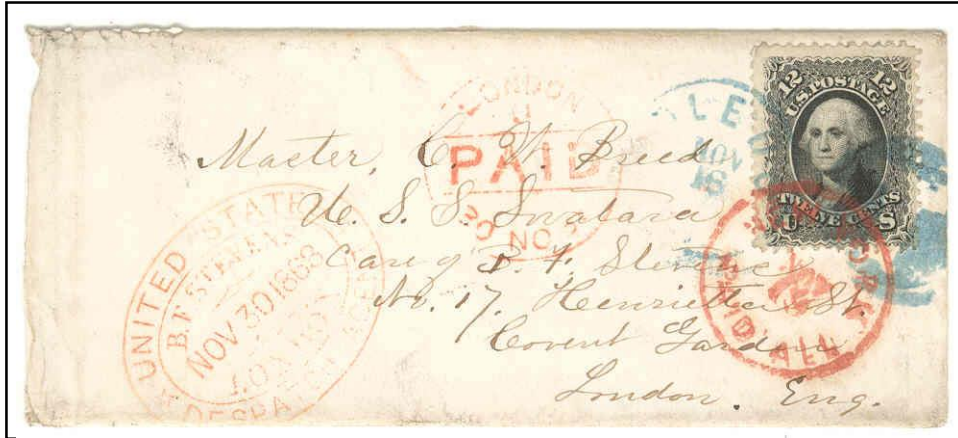 12 12
U.S. POSTAGE
TWELVE CENTS
U S
LONDON
PAID
30 NO
NOV
Master, C. W. Breed
U. S. S. Swatara
Care of B. F. Stevens
No. 17. Henrietta St.
Covent Garden
London. Eng.
UNITED STATES
B.F. STEVENS
NOV 30 1868
LONDON
DESPA
PAID ALL